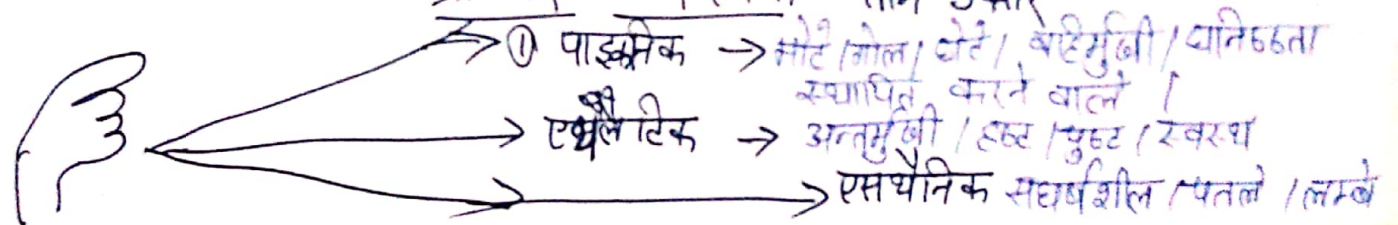 ① पाइकनिक → मोटे / गोल / छोटे / बहिर्मुखी / घनिष्ठता
स्थापित करने वाले |
एथलैटिक → अन्तर्मुखी / हष्ट / पुष्ट / स्वस्थ
एसथैनिक संघर्षशील / पतले / लम्बे